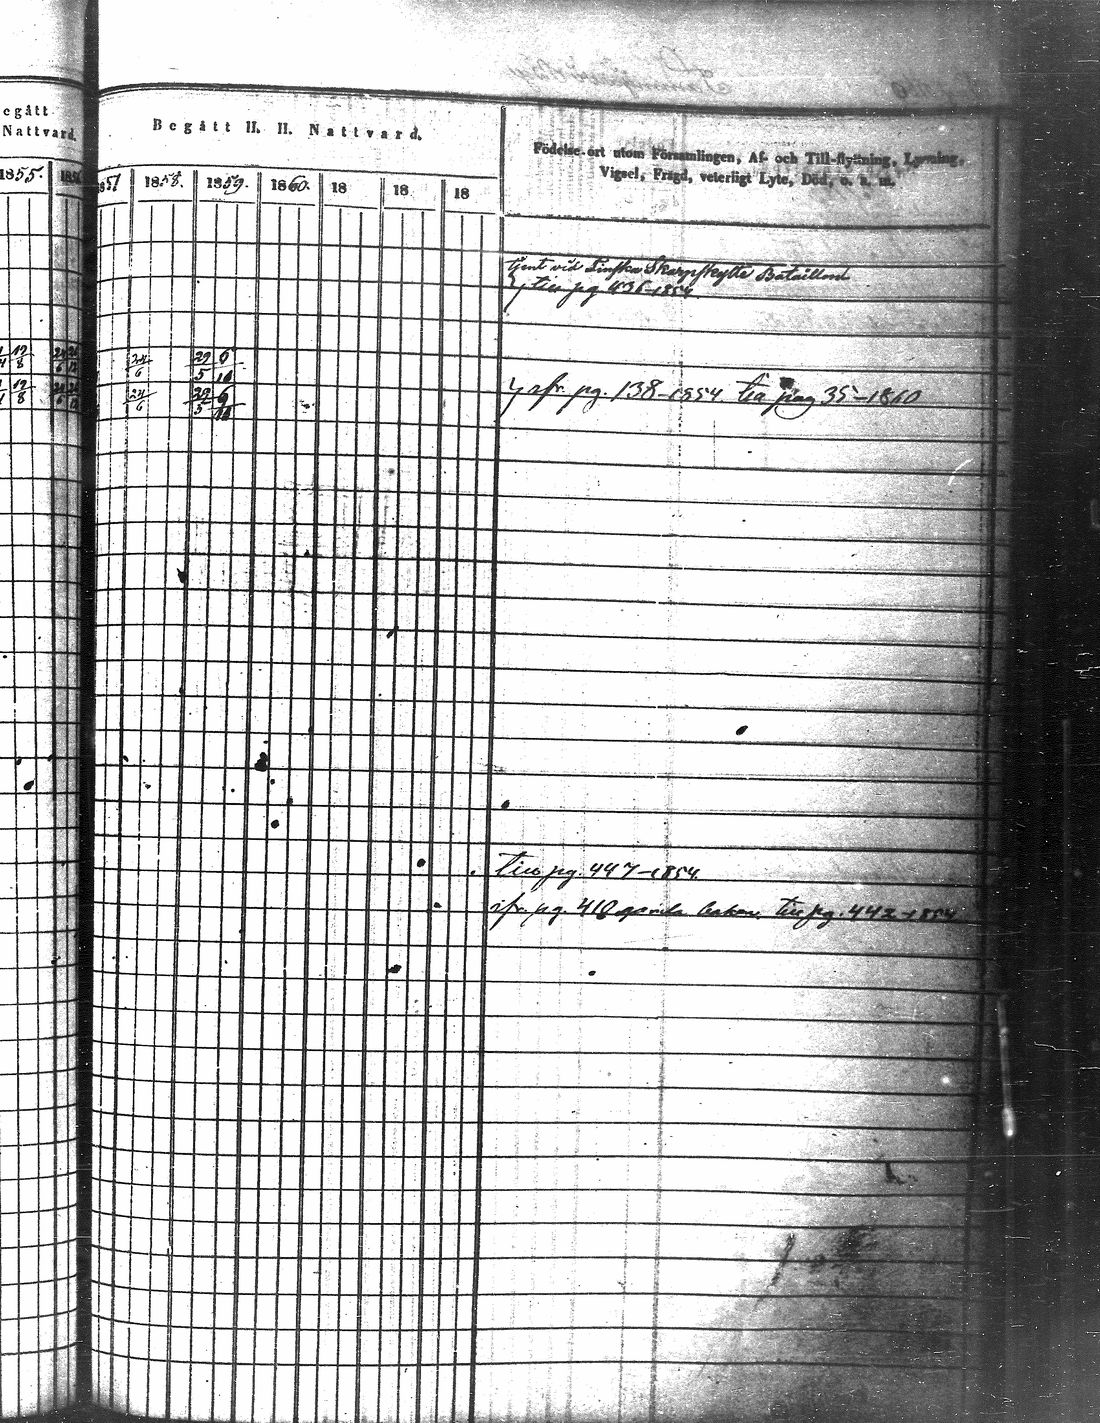 egått
Nattvard.
1855.
Begått H. H. Nattvard.
1858. 1859. 1860. 18 18 18
Födelse-ort utom Församlingen, Af- och Till-flyttning, Lysning,
Vigsel, Frägd, veterligt Lyte, Död, o. s. m.
tjent vid Finska Skarpskytte Bataillon
till pg 436-1854
12 24 29 6
8 6 5 10
12 24 29 6
8 6 5 10
ifr. pg. 138-1854. till pag 35-1860
till pg. 447-1854.
ifr. pg. 410 gamla boken, till pg. 442-1854